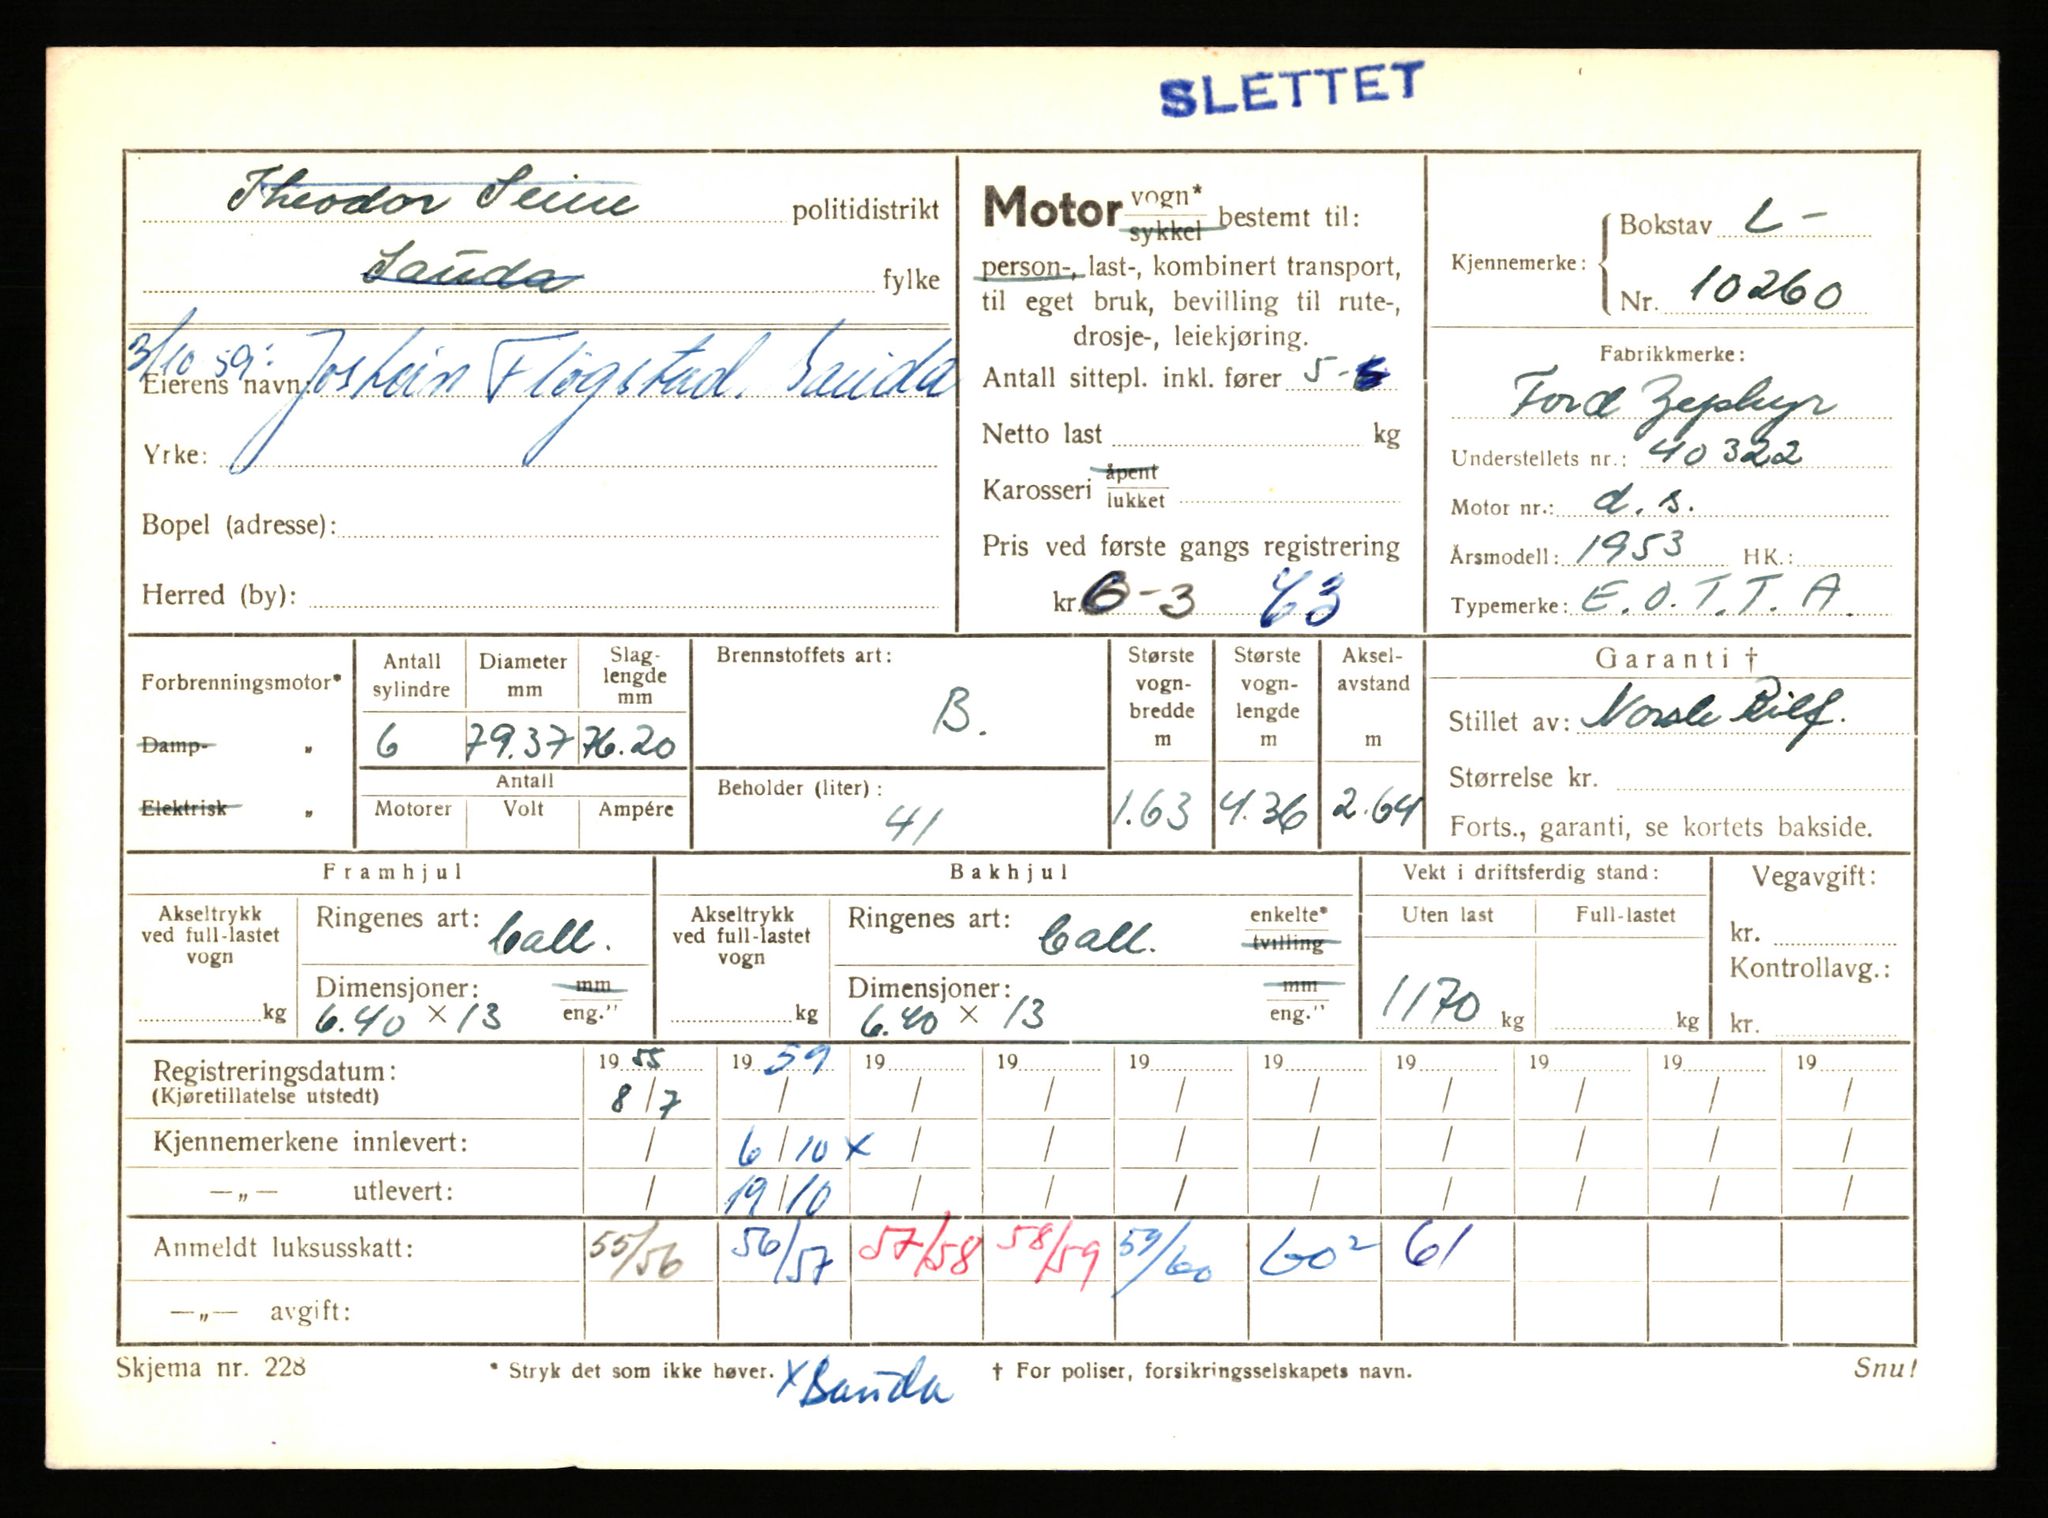 SLETTET
Theodor Seim politidistrikt
Sauda fylke
3/10 59:
Eierens navn: Jostein Fløgstad, Sauda
Yrke:
Bopel (adresse):
Herred (by):
Motor vogn* sykkel bestemt til:
person-, last-, kombinert transport,
til eget bruk, bevilling til rute-,
drosje-, leiekjøring.
Antall sittepl. inkl. fører 5-
Netto last kg
Karosseri åpent lukket
Pris ved første gangs registrering
kr. 6-3 63
Kjennemerke: Bokstav L-
Nr. 10260
Fabrikkmerke:
Ford Zephyr
Understellets nr.: 40322
Motor nr.: d.s.
Årsmodell: 1953 HK.:
Typemerke: E.O.T.T.A.
Forbrenningsmotor*
Damp- "
Elektrisk "
Antall sylindre
6
Diameter mm
79.37
Slag-lengde mm
76.20
Antall
Motorer Volt Ampére
Brennstoffets art:
B.
Beholder (liter):
41
Største vogn-bredde m
1.63
Største vogn-lengde m
4.36
Aksel-avstand m
2.64
Garanti †
Stillet av: Norsk Bilf.
Størrelse kr.
Forts., garanti, se kortets bakside.
Framhjul
Akseltrykk ved full-lastet vogn
kg
Ringenes art: Call.
Dimensjoner: mm eng."
6.40 × 13
Bakhjul
Akseltrykk ved full-lastet vogn
kg
Ringenes art: Call. enkelte* tvilling
Dimensjoner: mm eng."
6.40 × 13
Vekt i driftsferdig stand:
Uten last Full-lastet
1170 kg kg
Vegavgift:
kr.
Kontrollavg.:
kr.
Registreringsdatum: 19 55 19 59 19 19 19 19 19 19 19 19
(Kjøretillatelse utstedt) 8/7 / / / / / / / / /
Kjennemerkene innlevert: / 6/10 x / / / / / / / /
—„— utlevert: / 19/10 / / / / / / / /
Anmeldt luksusskatt: 55/56 56/57 57/58 58/59 59/60 60² 61
—„— avgift:
Skjema nr. 228 * Stryk det som ikke høver. x Sauda † For poliser, forsikringsselskapets navn. Snu!